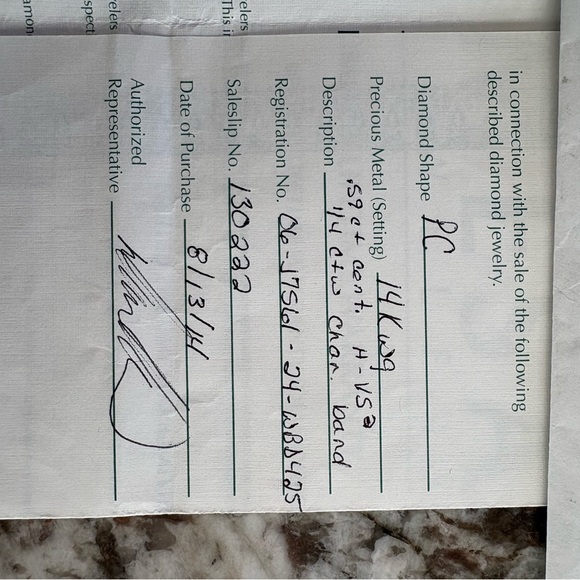 in connection with the sale of the following
described diamond jewelry.
Diamond Shape PC
Precious Metal (Setting) 14K wg
.59 ct cent. H-VS2
Description 1/4 ctw chan. band
Registration No. 06-17561-24-WBD425
Saleslip No. 130222
Date of Purchase 8/13/14
Authorized
Representative
elers
This i
elers
spect
amon